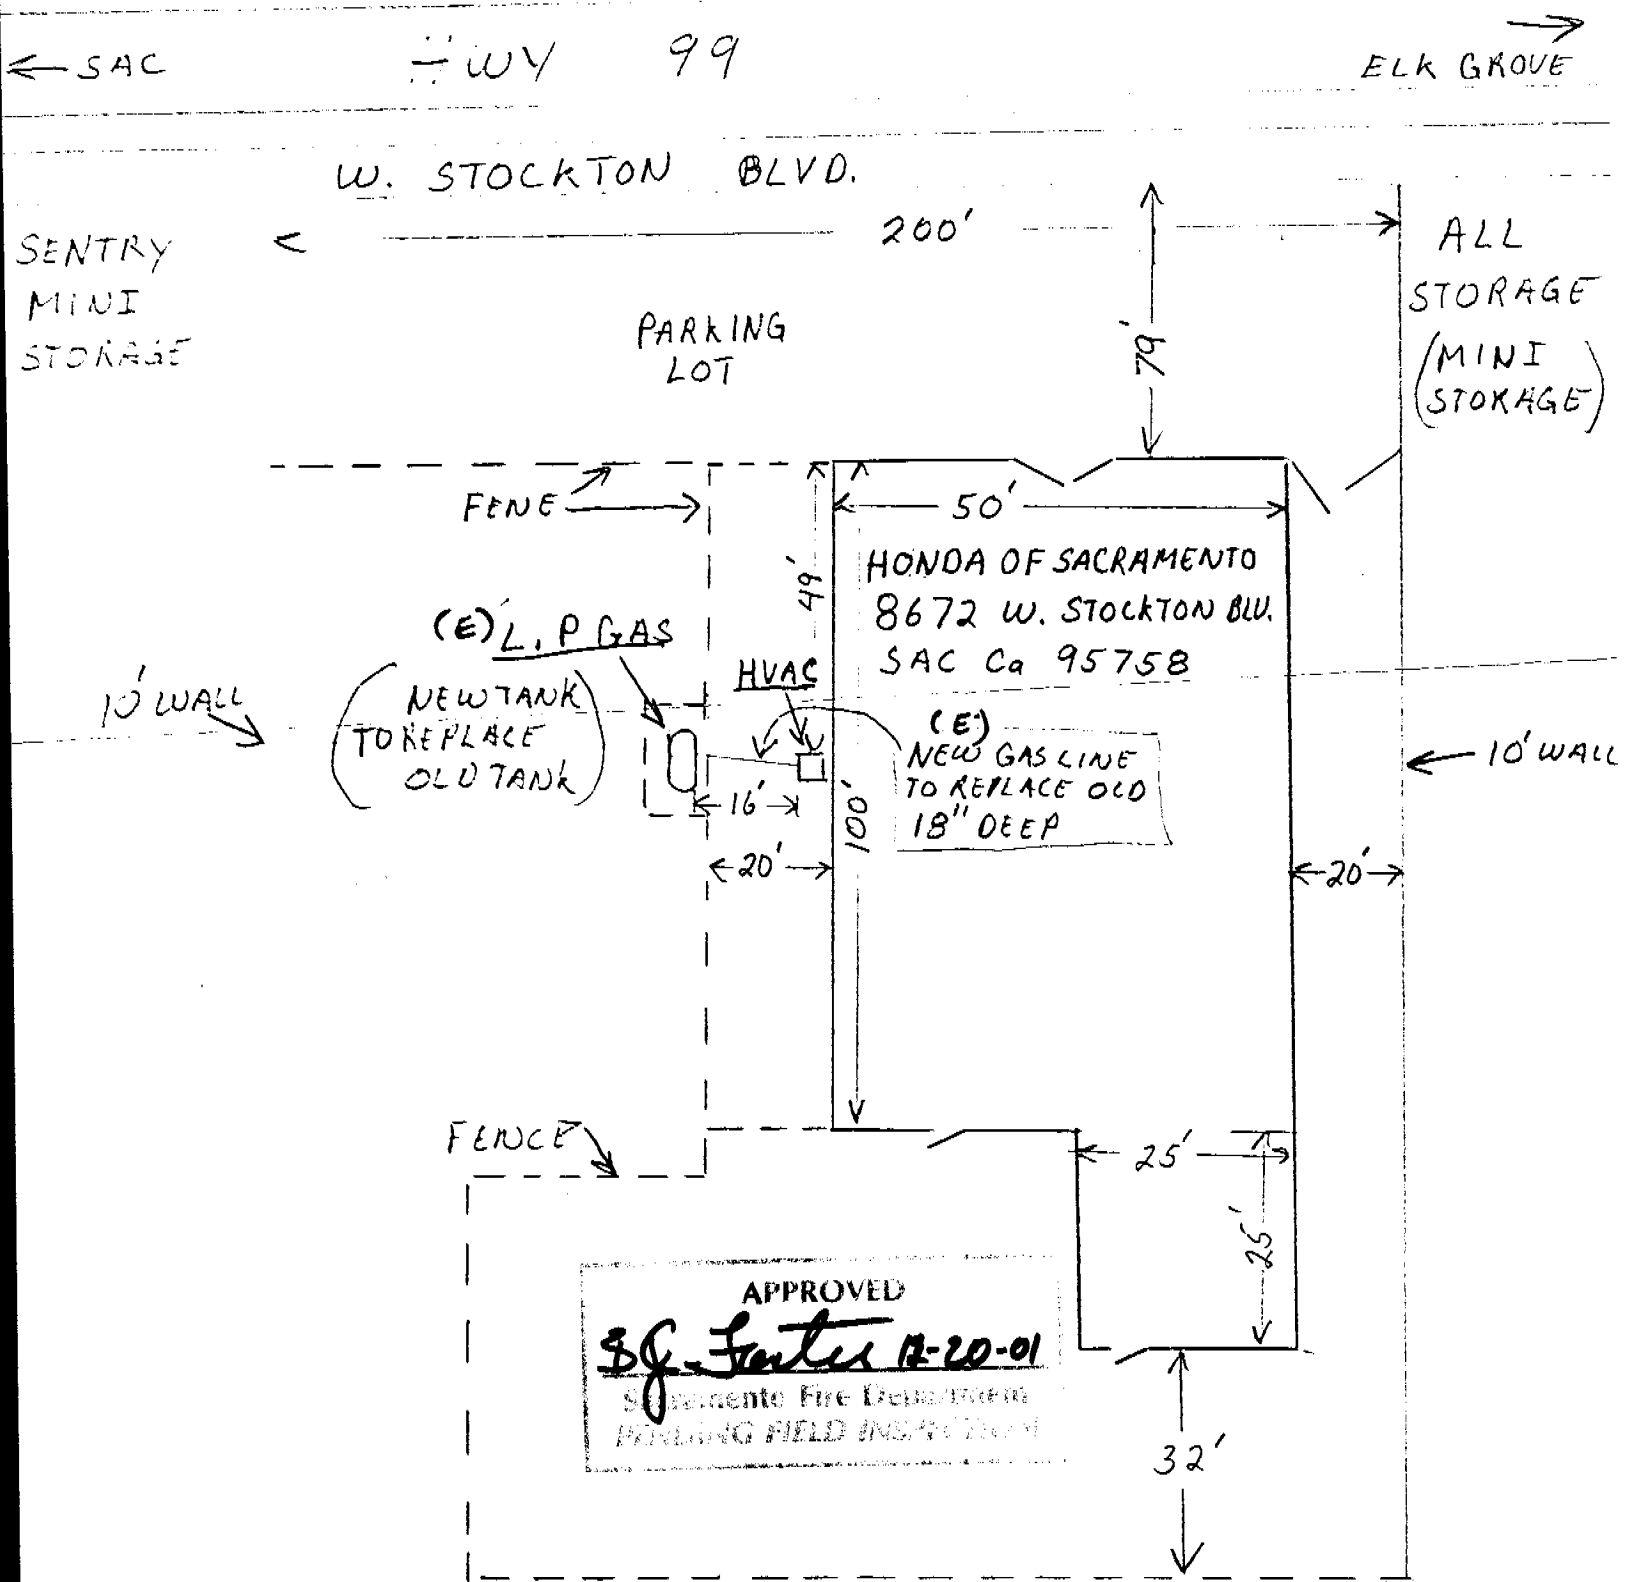 ← SAC
HWY 99
→
ELK GROVE
W. STOCKTON BLVD.
200'
SENTRY
MINI
STORAGE
ALL
STORAGE
(MINI
STORAGE)
PARKING
LOT
79'
FENE
50'
49'
HONDA OF SACRAMENTO
8672 W. STOCKTON BLV.
SAC Ca 95758
(E) L.P GAS
(NEW TANK
TO REPLACE
OLD TANK)
HVAC
10' WALL
(E)
NEW GAS LINE
TO REPLACE OLD
18" DEEP
10' WALL
16'
100'
20'
20'
FENCE
25'
25'
APPROVED
12-20-01
Sacramento Fire Department
PENDING FIELD INSPECTION
32'